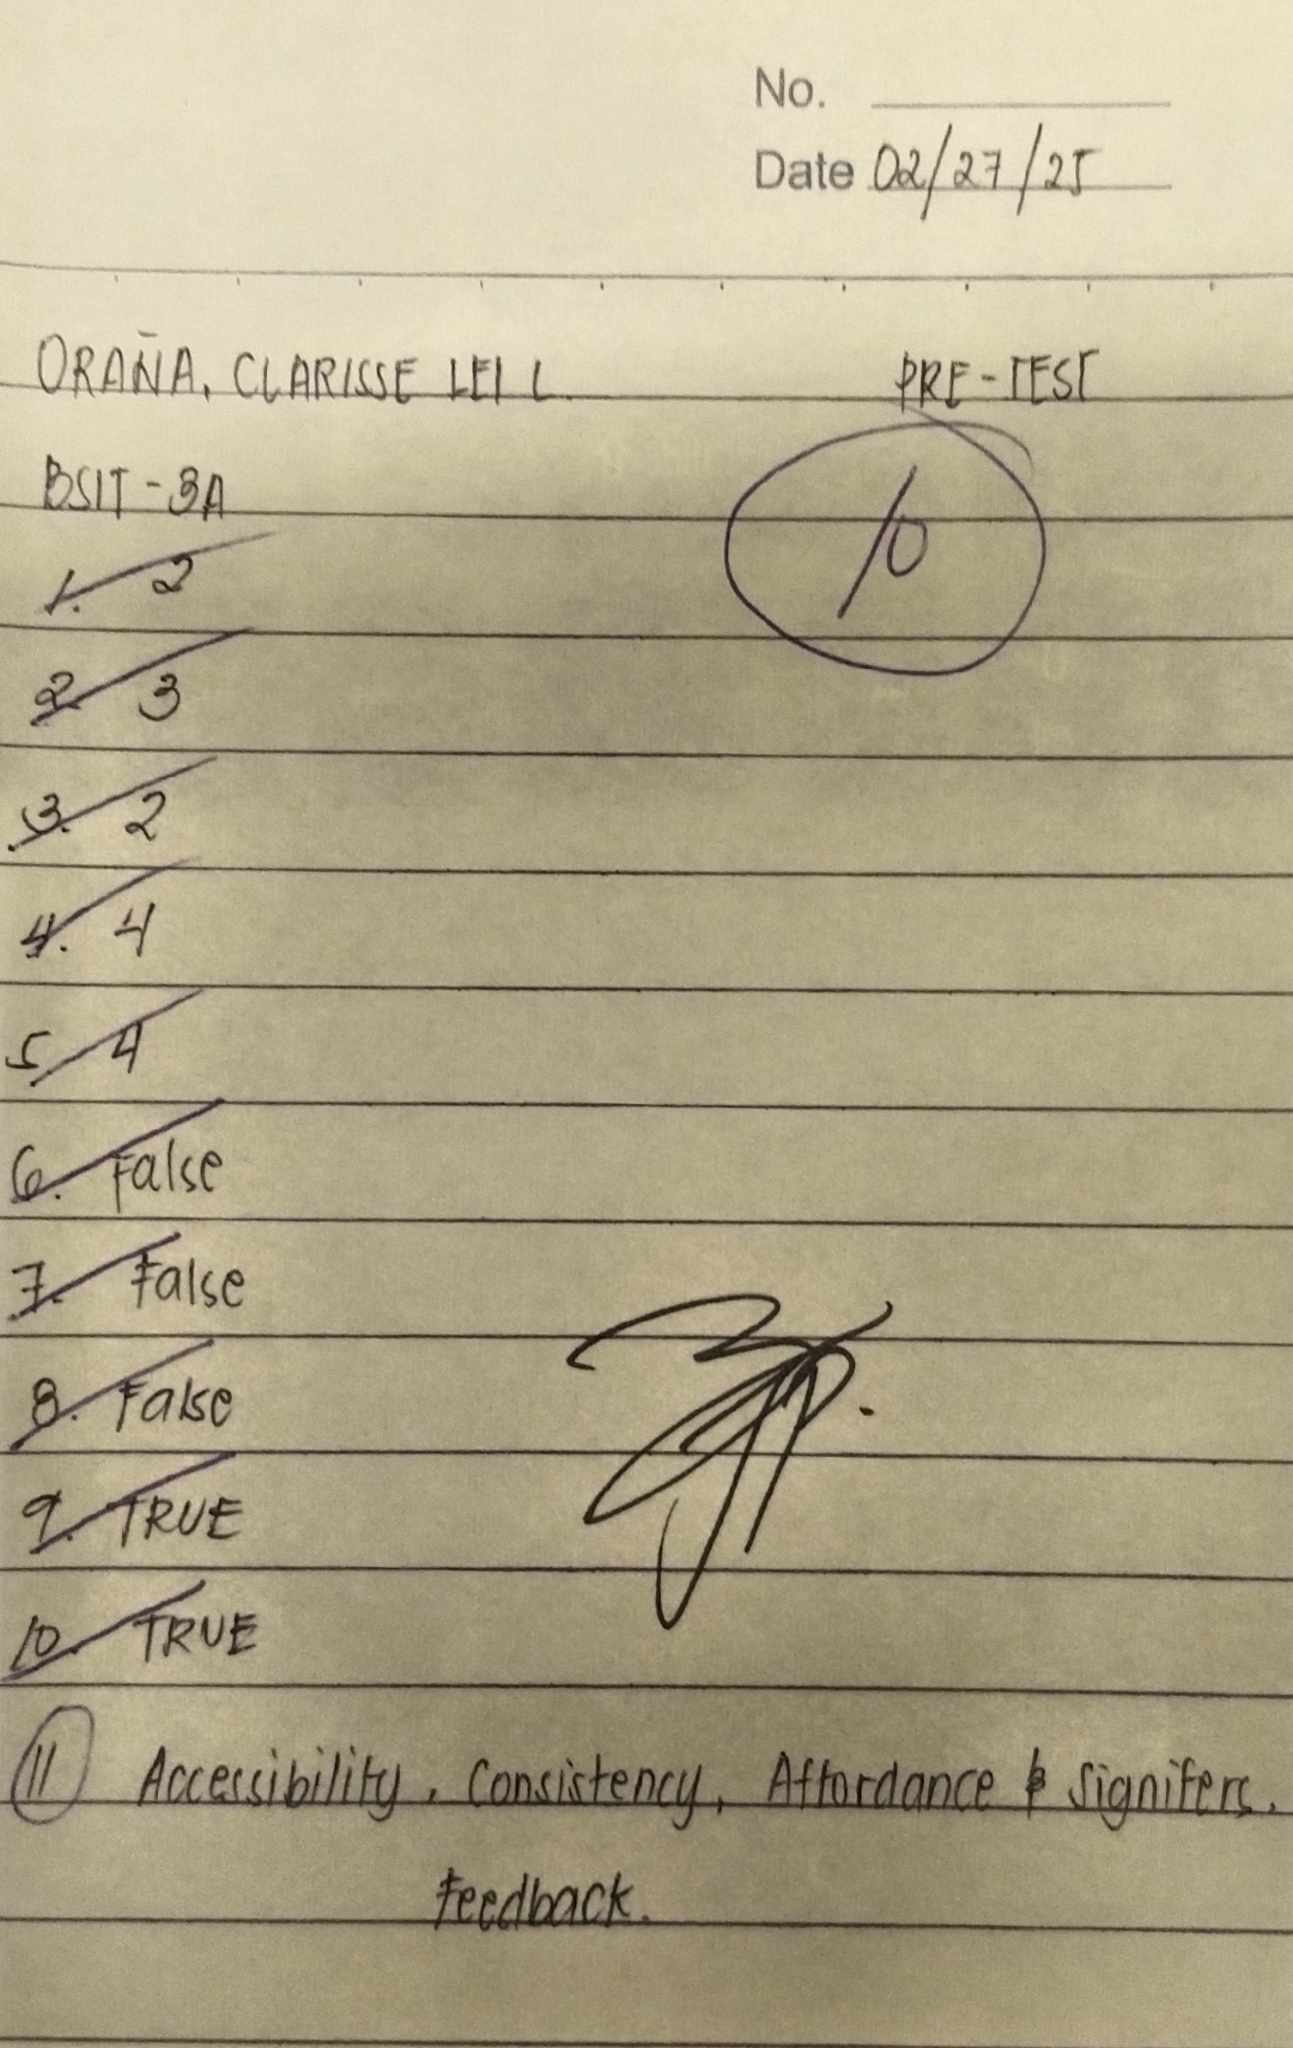 No.
Date 02/27/25
ORAÑA, CLARISSE LEI L. PRE-TEST
BSIT-3A
10
1. 2
2. 3
3. 2
4. 4
5. 4
6. False
7. False
8. False
9. TRUE
10. TRUE
11 Accessibility, Consistency, Affordance & Signifers,
Feedback.